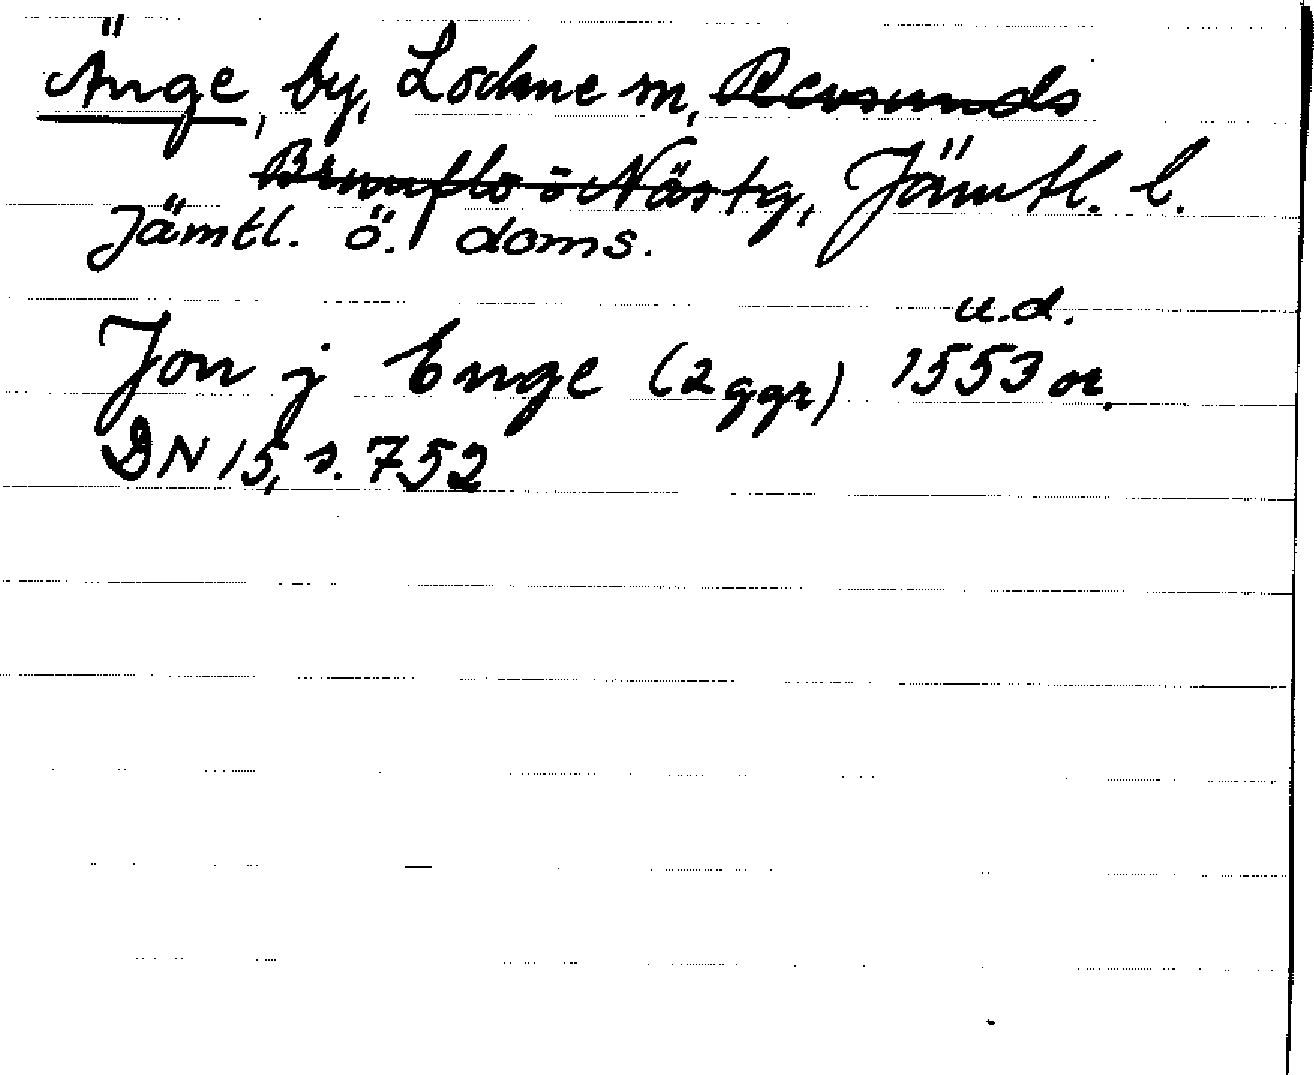 Änge, by, Lockne sn, Revsunds
Brunflo o Näs tg, Jämtl. l.
Jämtl. ö. doms.
u.d.
Jon j Enge (2 ggr) 1553 or.
DN 15, s. 752